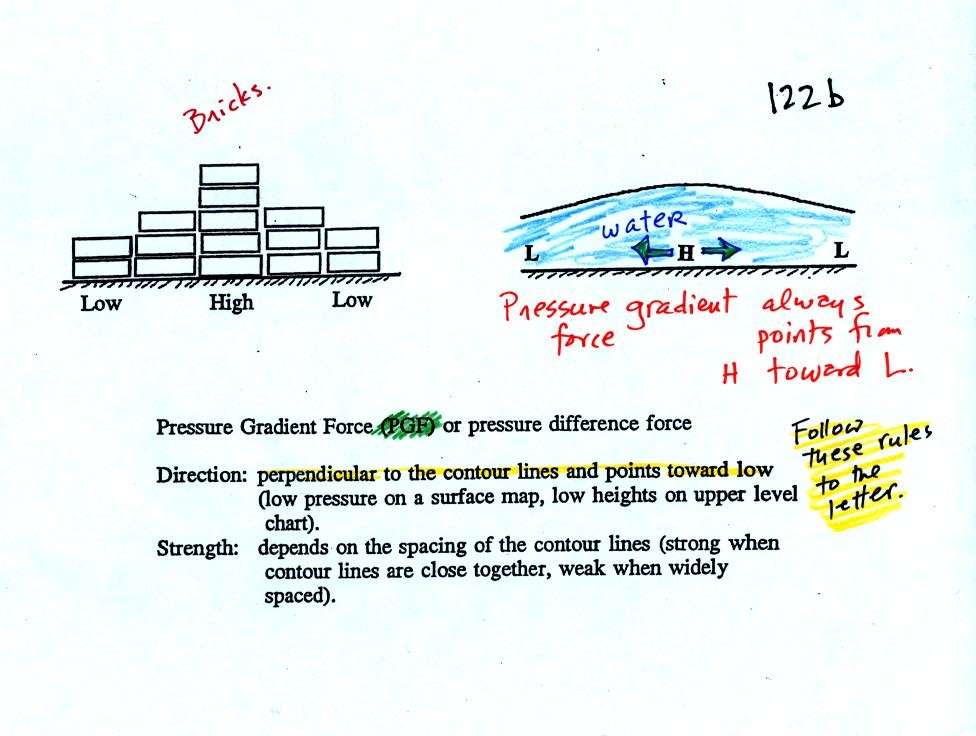 Bricks.
122b
water
L
H
L
Low
High
Low
Pressure gradient always
force points from
H toward L.
Pressure Gradient Force (PGF) or pressure difference force
Direction: perpendicular to the contour lines and points toward low
(low pressure on a surface map, low heights on upper level
chart).
Strength: depends on the spacing of the contour lines (strong when
contour lines are close together, weak when widely
spaced).
Follow
these rules
to the
letter.